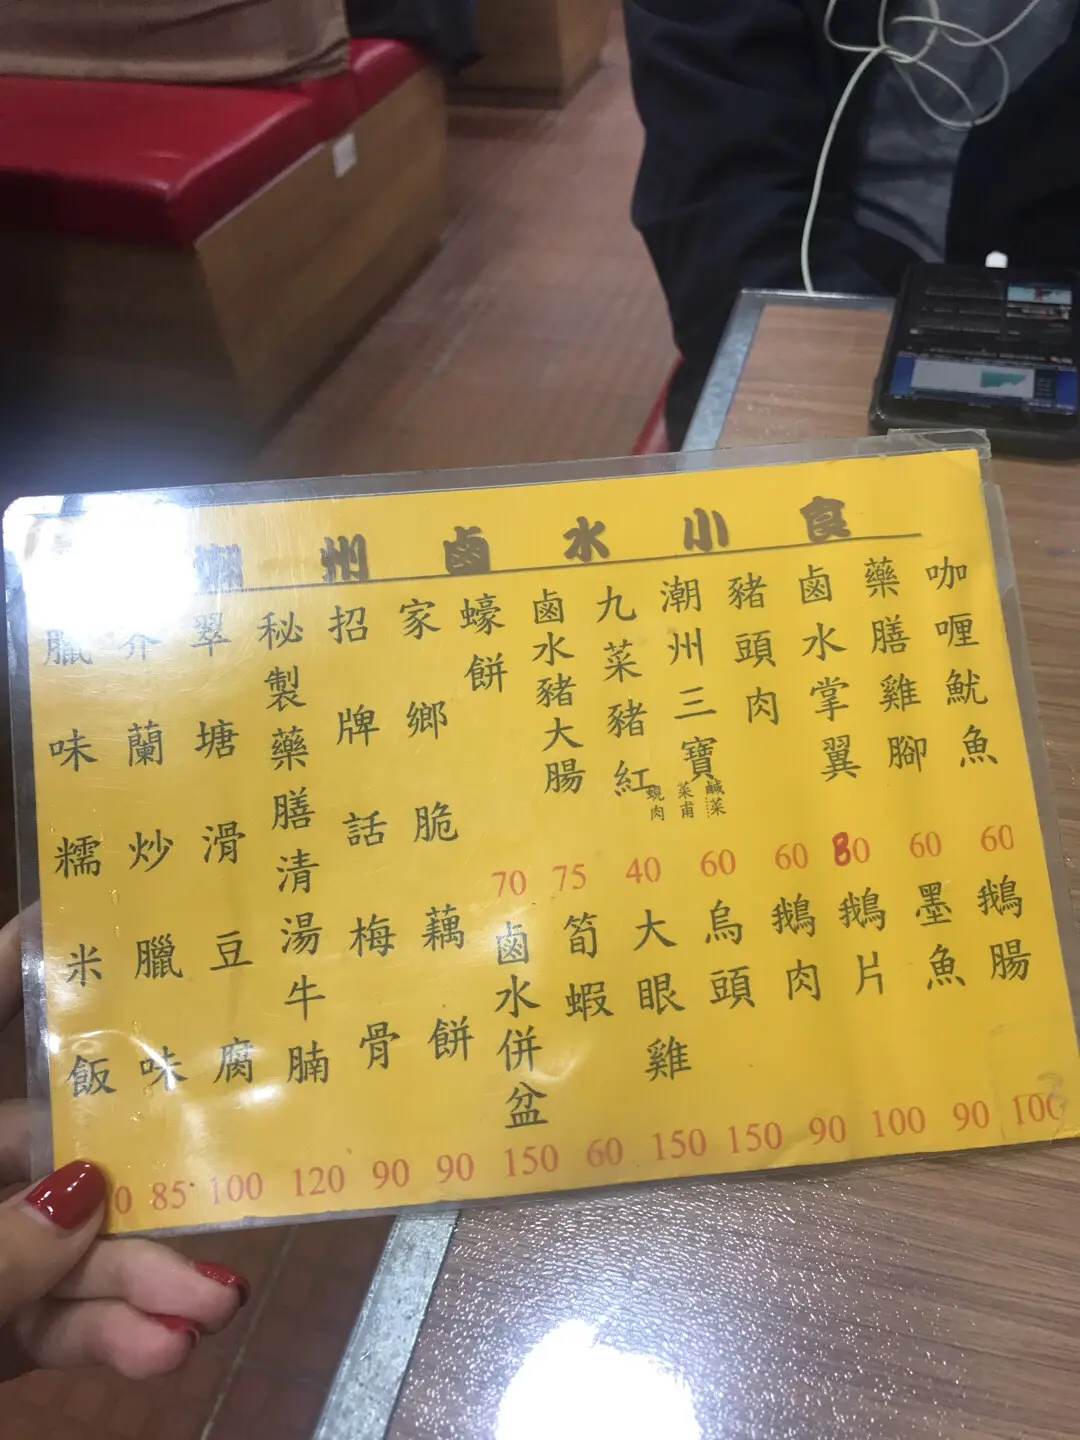 潮州鹵水小食
咖喱魷魚
60
藥膳雞腳
60
鹵水掌翼
80
豬頭肉
60
潮州三寶
鹹菜
菜甫
蜆肉
60
九菜豬紅
40
鹵水豬大腸
75
蠔餅
70
鵝腸
100
墨魚
90
鵝片
100
鵝肉
90
烏頭
150
大眼雞
150
筍蝦
60
鹵水併盆
150
家鄉脆藕餅
90
招牌話梅骨
90
秘製藥膳清湯牛腩
120
翠塘滑豆腐
100
芥蘭炒臘味
85
臘味糯米飯